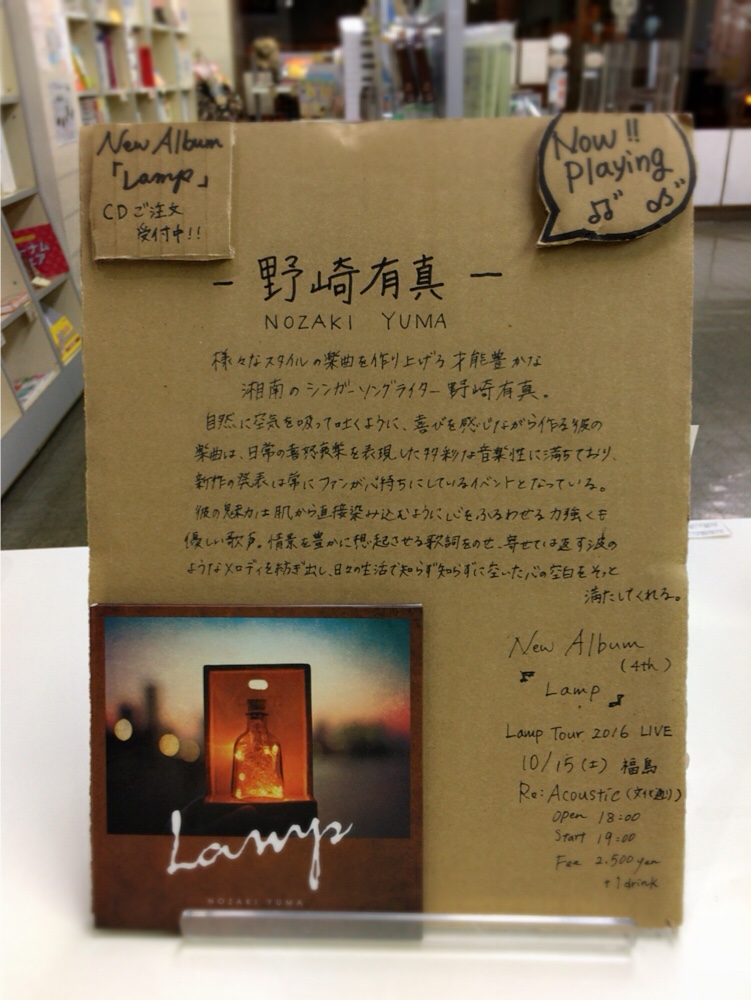 New Album
「Lamp」
CDご注文
受付中!!
Now!!
Playing
- 野崎有真 -
NOZAKI YUMA
様々なスタイルの楽曲を作り上げる才能豊かな
湘南のシンガーソングライター野崎有真。
自然に空気を吸って吐くように、喜びを感じながら作る彼の
楽曲は、日常の喜怒哀楽を表現した多彩な音楽性に満ちており、
新作の発表は常にファンが心待ちにしているイベントとなっている。
彼の魅力は肌から直接染み込むように心をふるわせる力強くも
優しい歌声。情景を豊かに想起させる歌詞をのせ、寄せては返す波の
ようなメロディを紡ぎ出し、日々の生活で知らず知らずに空いた心の空白をそっと
満たしてくれる。
New Album
(4th)
Lamp
Lamp Tour 2016 LIVE
10/15(土) 福島
Re:Acoustic(文化通り)
Open 18:00
Start 19:00
Fee 2.500yen
+1drink
Lamp
NOZAKI YUMA